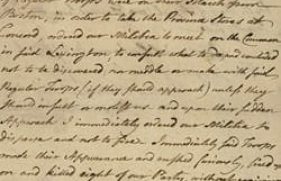 of Regular Troops were on their March from
Boston, in order to take the Province Stores at
Concord, ordered our Militia to meet on the Common
in said Lexington, to consult what to do, and concluded
not to be discovered, nor meddle or make with said
Regular Troops (if they should approach) unless they
should insult or molest us and upon their sudden
Approach I immediately ordered our Militia to
disperse and not to fire. Immediately said Troops
made their Appearance and rushed furiously, fired up-
on and killed eight of our Party, without receiving